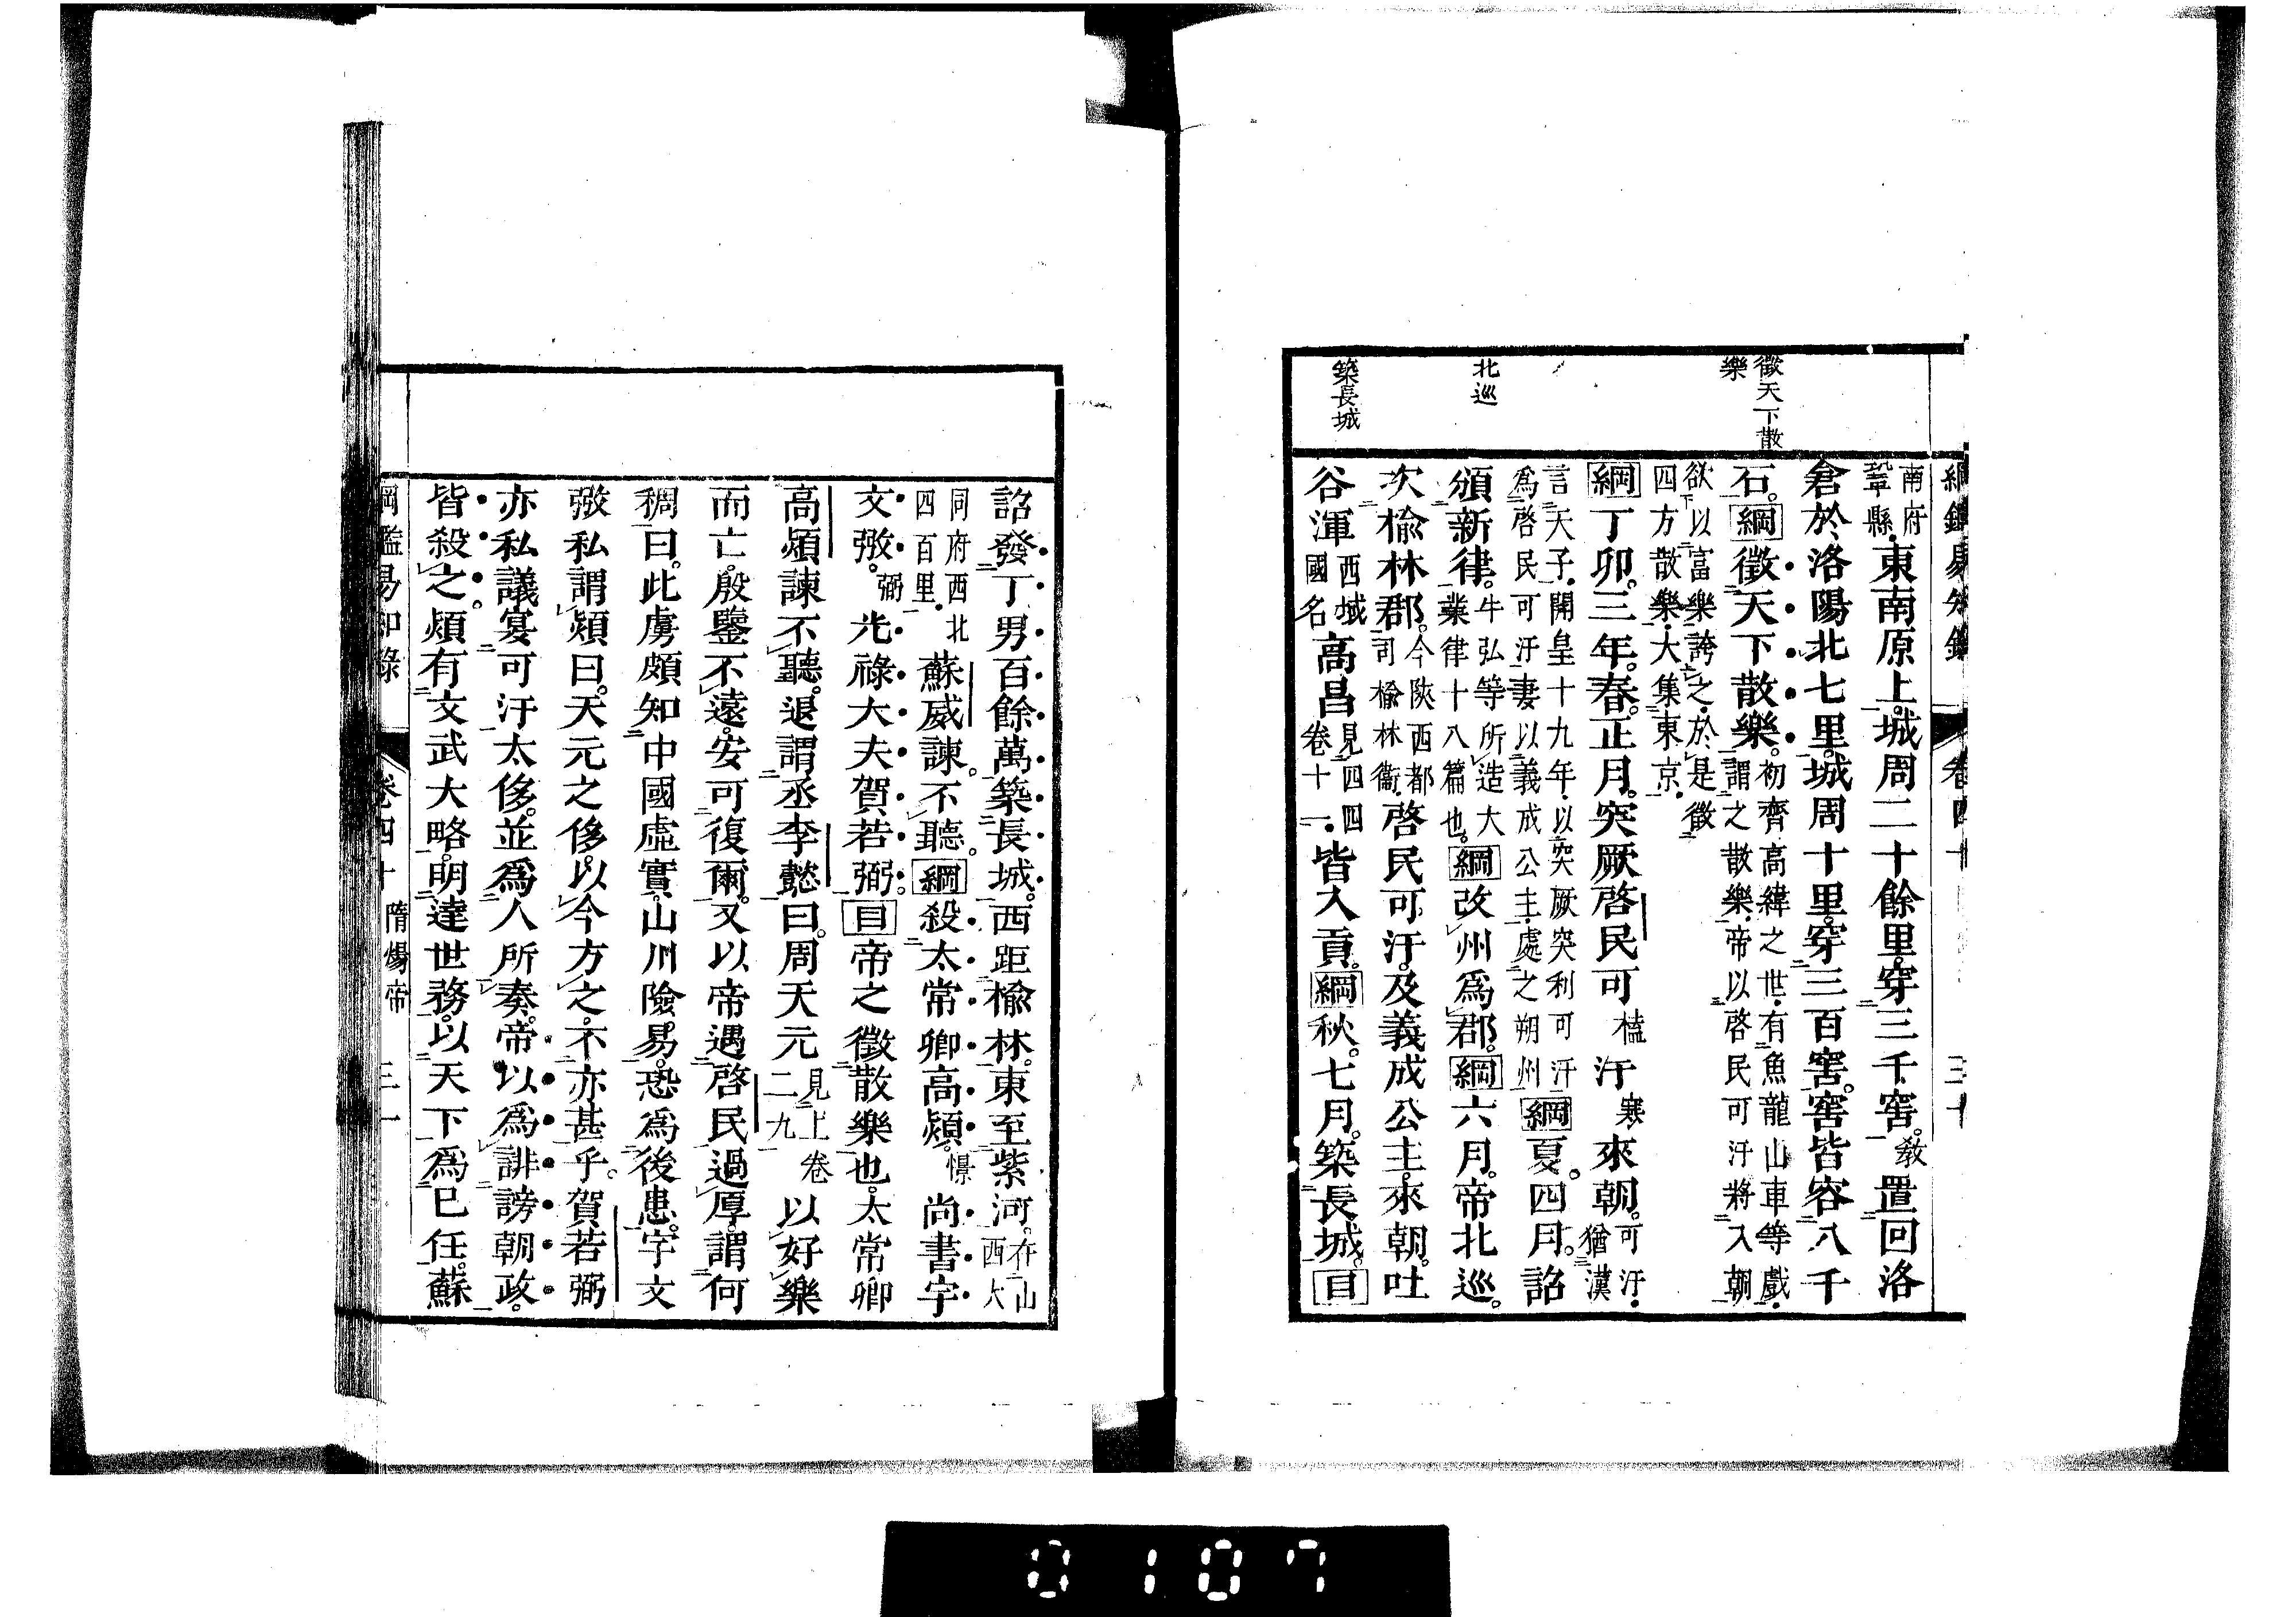 綱鑑易知錄 卷四十 三十
徵天下散樂
北巡
築長城
南府鞏縣東南原上。城周二十餘里。穿三千窖。敎置回洛
倉於洛陽北七里。城周十里。穿三百窖。窖皆容八千
石。綱徵天下散樂。初齊高緯之世有魚龍山車等戲謂之散樂帝以啓民可汗將入朝
欲以富樂誇之於是徵四方散樂大集東京
綱丁卯。三年。春。正月。突厥啓民可榼汗寒來朝。可汗猶漢
言天子開皇十九年以突厥突利可汗爲啓民可汗妻以義成公主處之朔州綱夏。四月。詔
頒新律。牛弘等所造大業律十八篇也。綱改州爲郡。綱六月。帝北巡。
次榆林郡。今陝西都司榆林衞啓民可汗。及義成公主。來朝。吐
谷渾西域國名高昌見四四卷十一皆入貢。綱秋。七月。築長城。目
詔發丁男百餘萬築長城。西距榆林。東至紫河。在山西大
同府西北四百里蘇威諫。不聽。綱殺太常卿高熲。憬尚書宇
文㢸。弼光祿大夫賀若弼。目帝之徵散樂也。太常卿
高熲諫不聽。退謂丞李懿曰。周天元見上卷二九以好樂
而亡。殷鑒不遠。安可復爾。又以帝遇啓民過厚。謂何
稠曰。此虜頗知中國虛實。山川險易。恐爲後患。宇文
㢸私謂熲曰。天元之侈。以今方之。不亦甚乎。賀若弼
亦私議宴可汗太侈。並爲人所奏。帝以爲誹謗朝政。
皆殺之。熲有文武大略。明達世務。以天下爲已任。蘇
綱鑑易知錄 卷四十 隋煬帝 三一
0107